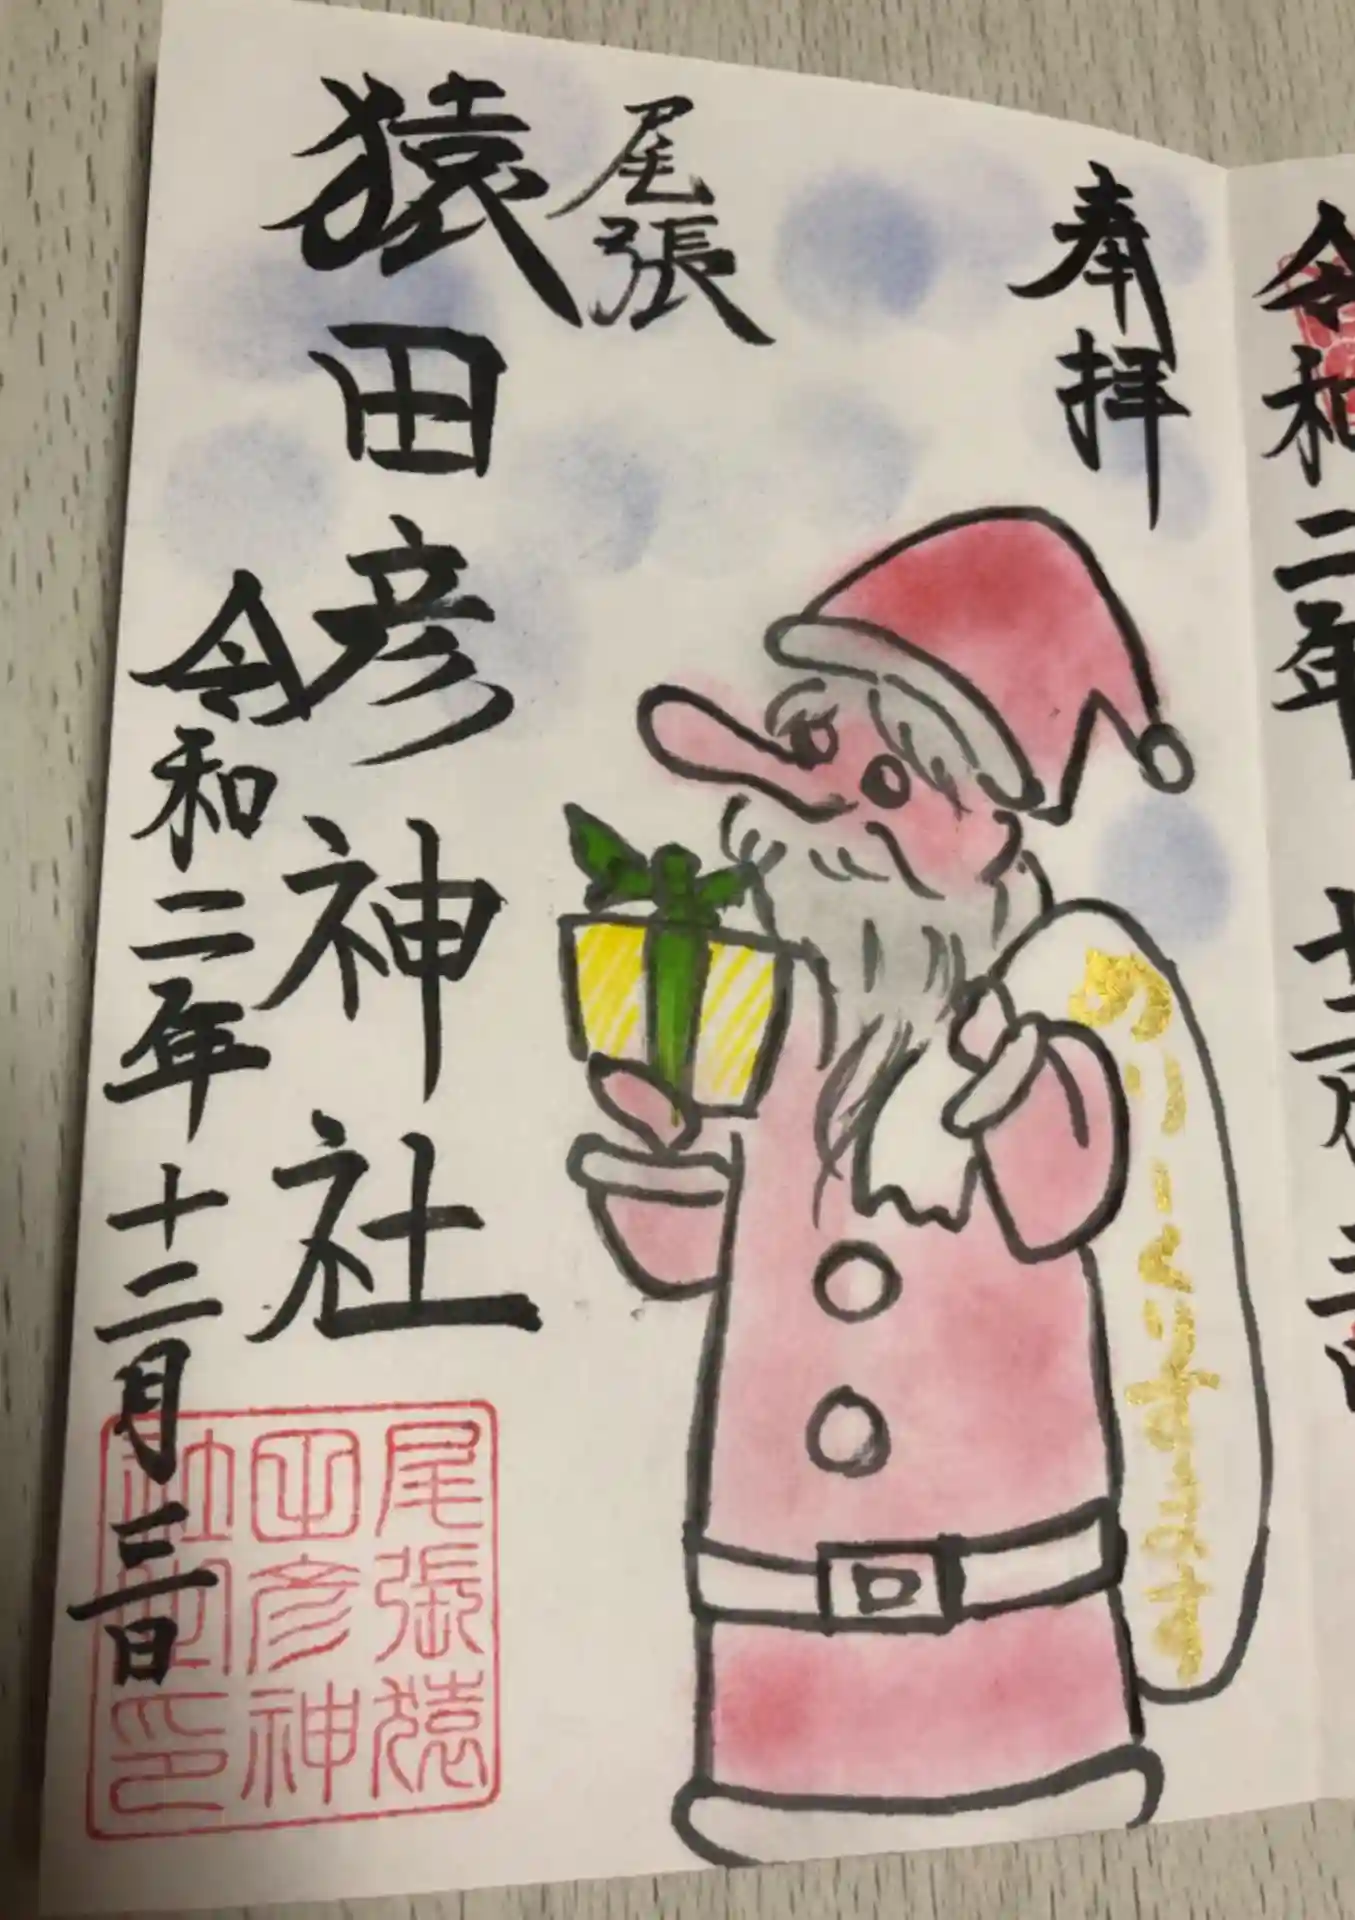 奉拝
めりーくりすます
尾張
猿田彦神社
令和二年十二月三日
尾張猿
田彦神
社之印
令和二年 十二月三日